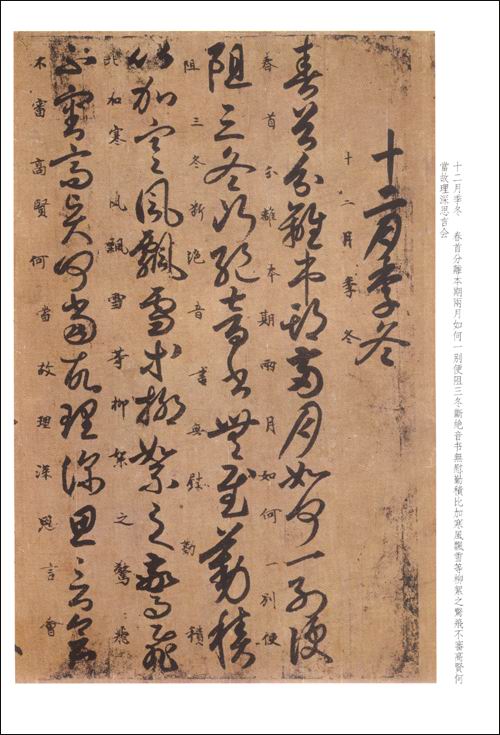 十二月季冬　春首分離本期兩月如何一別便阻三冬斷絶音书無慰勤積比加寒風飄雪等柳絮之驚飛不審高賢何
當故理深思言会
十二月季冬
十二月季冬
春首分離本期兩月如何一別便
春首分離本期兩月如何一別便
阻三冬斷絶音書無慰勤積
阻三冬斷絶音書無慰勤積
比加寒風飄雪等柳絮之驚飛
比加寒風飄雪等柳絮之驚飛
不審高賢何當故理深思言會
不審高賢何當故理深思言會